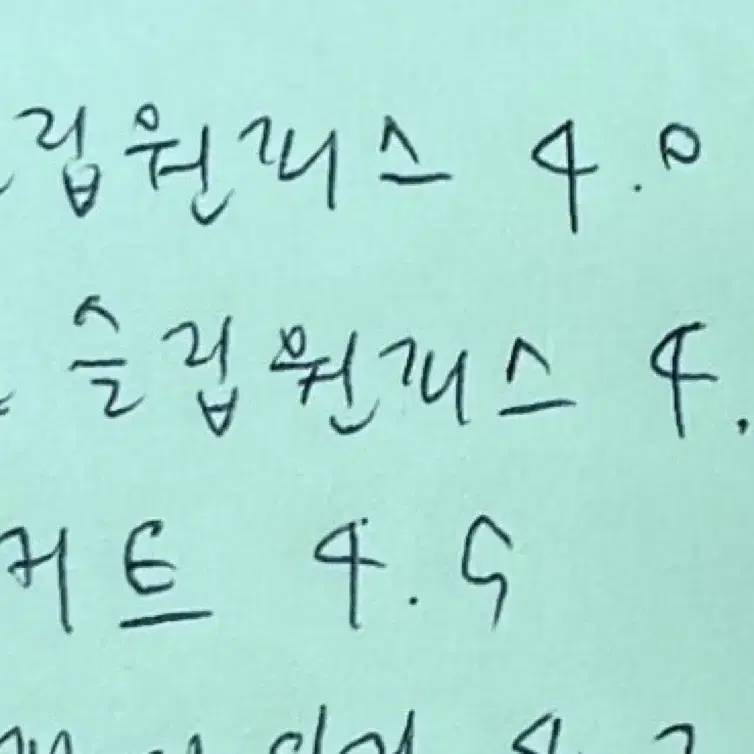 립원피스 4.0
슬립원피스 4.
커트 4.5